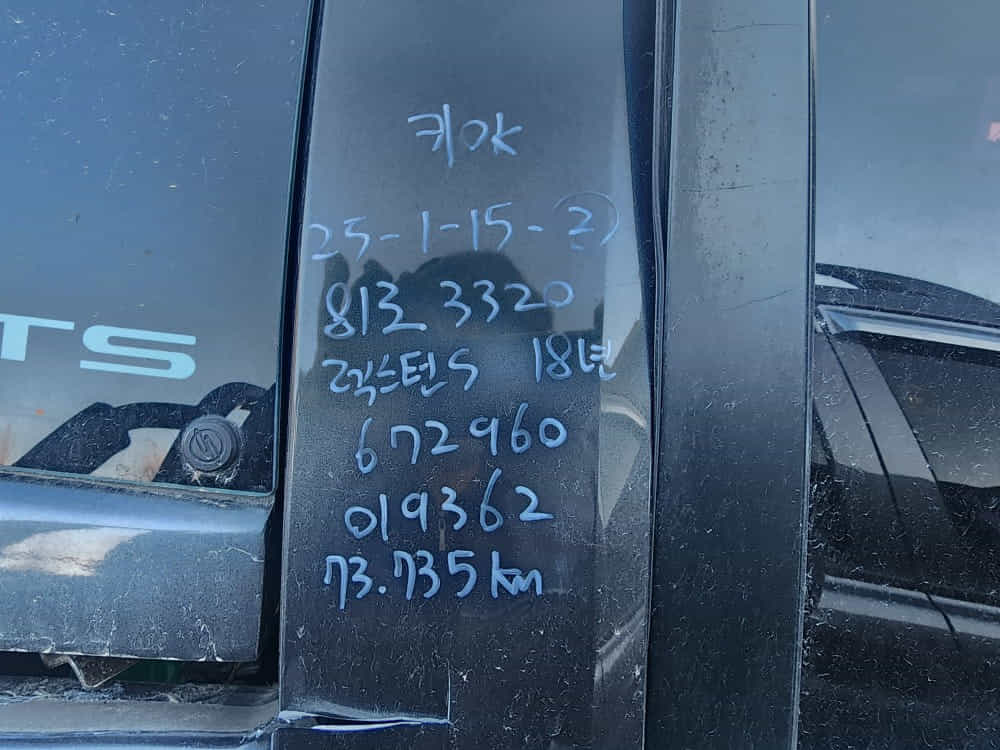 키OK
25-1-15-②
81로 3320
렉스턴S 18년
672960
019362
73.735km
TS